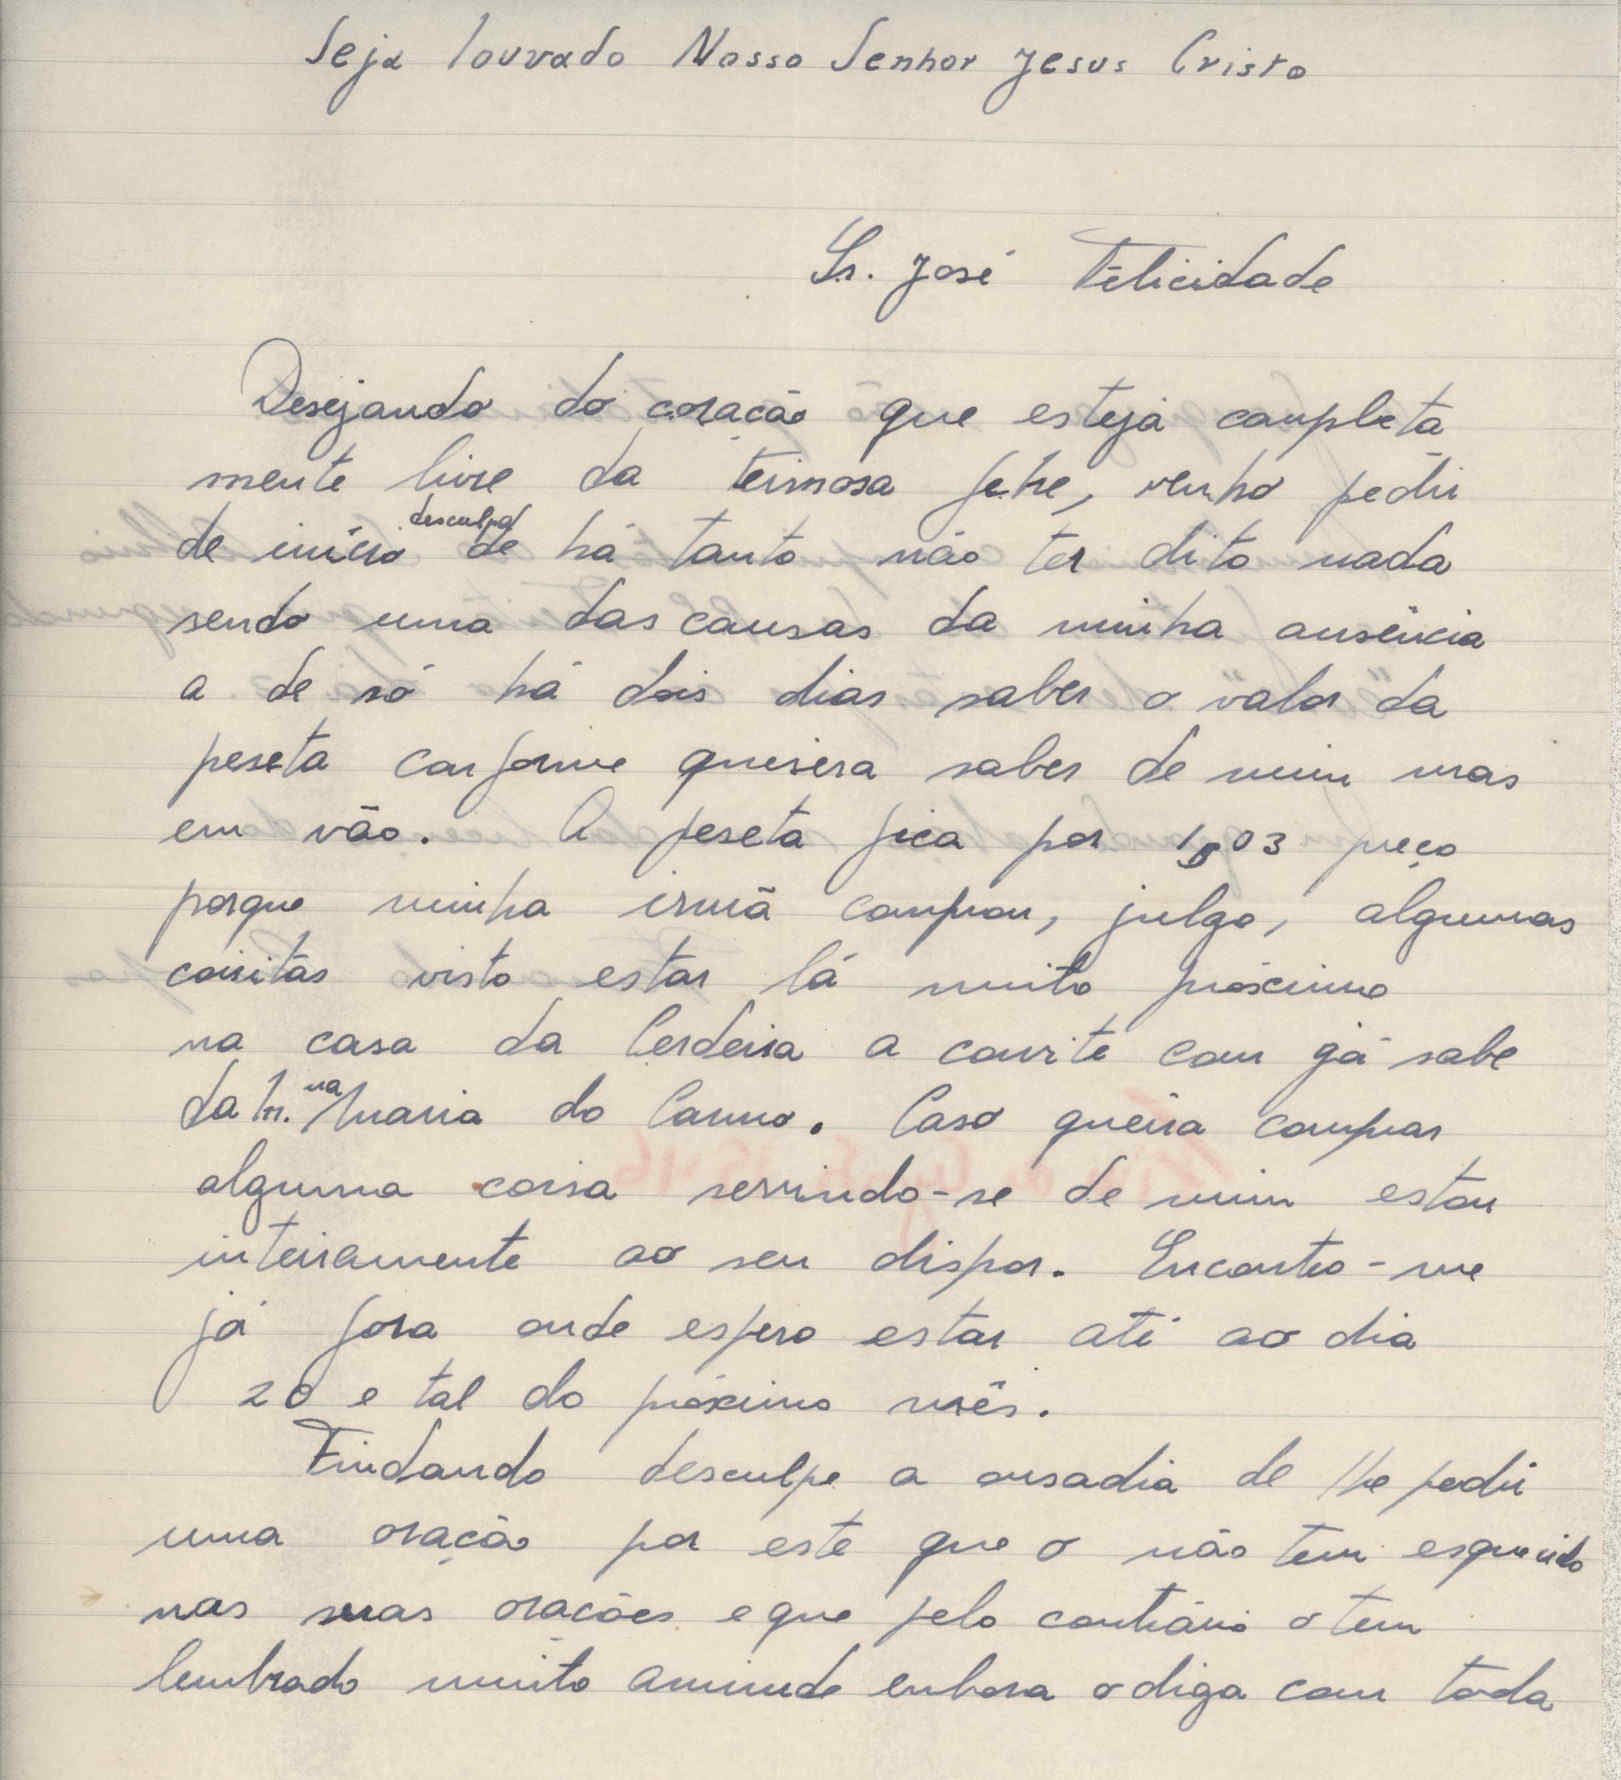 Seja louvado Nosso Senhor Jesus Cristo
Sr. José Felicidade
Desejando do coração que esteja completa
mente livre da teimosa febre, venho pedir
de início desculpa de há tanto não ter dito nada
sendo uma das causas da minha ausência
a de só há dois dias saber o valor da
peseta conforme quisera saber de mim mas
em vão. A peseta fica por 1$03 preço
porque minha irmã comprou, julgo, algumas
coisitas visto estar lá muito próximo
na casa da Cerdeira a convite com já sabe
da M.na Maria do Carmo. Caso queira comprar
alguma coisa servindo-se de mim estou
inteiramente ao seu dispor. Encontro-me
já fora onde espero estar até ao dia
20 e tal do próximo mês.
Findando desculpe a ousadia de lhe pedir
uma oração por este que o não tem esquecido
nas suas orações e que pelo contrário o tem
lembrado muito amiude enbora o diga com toda